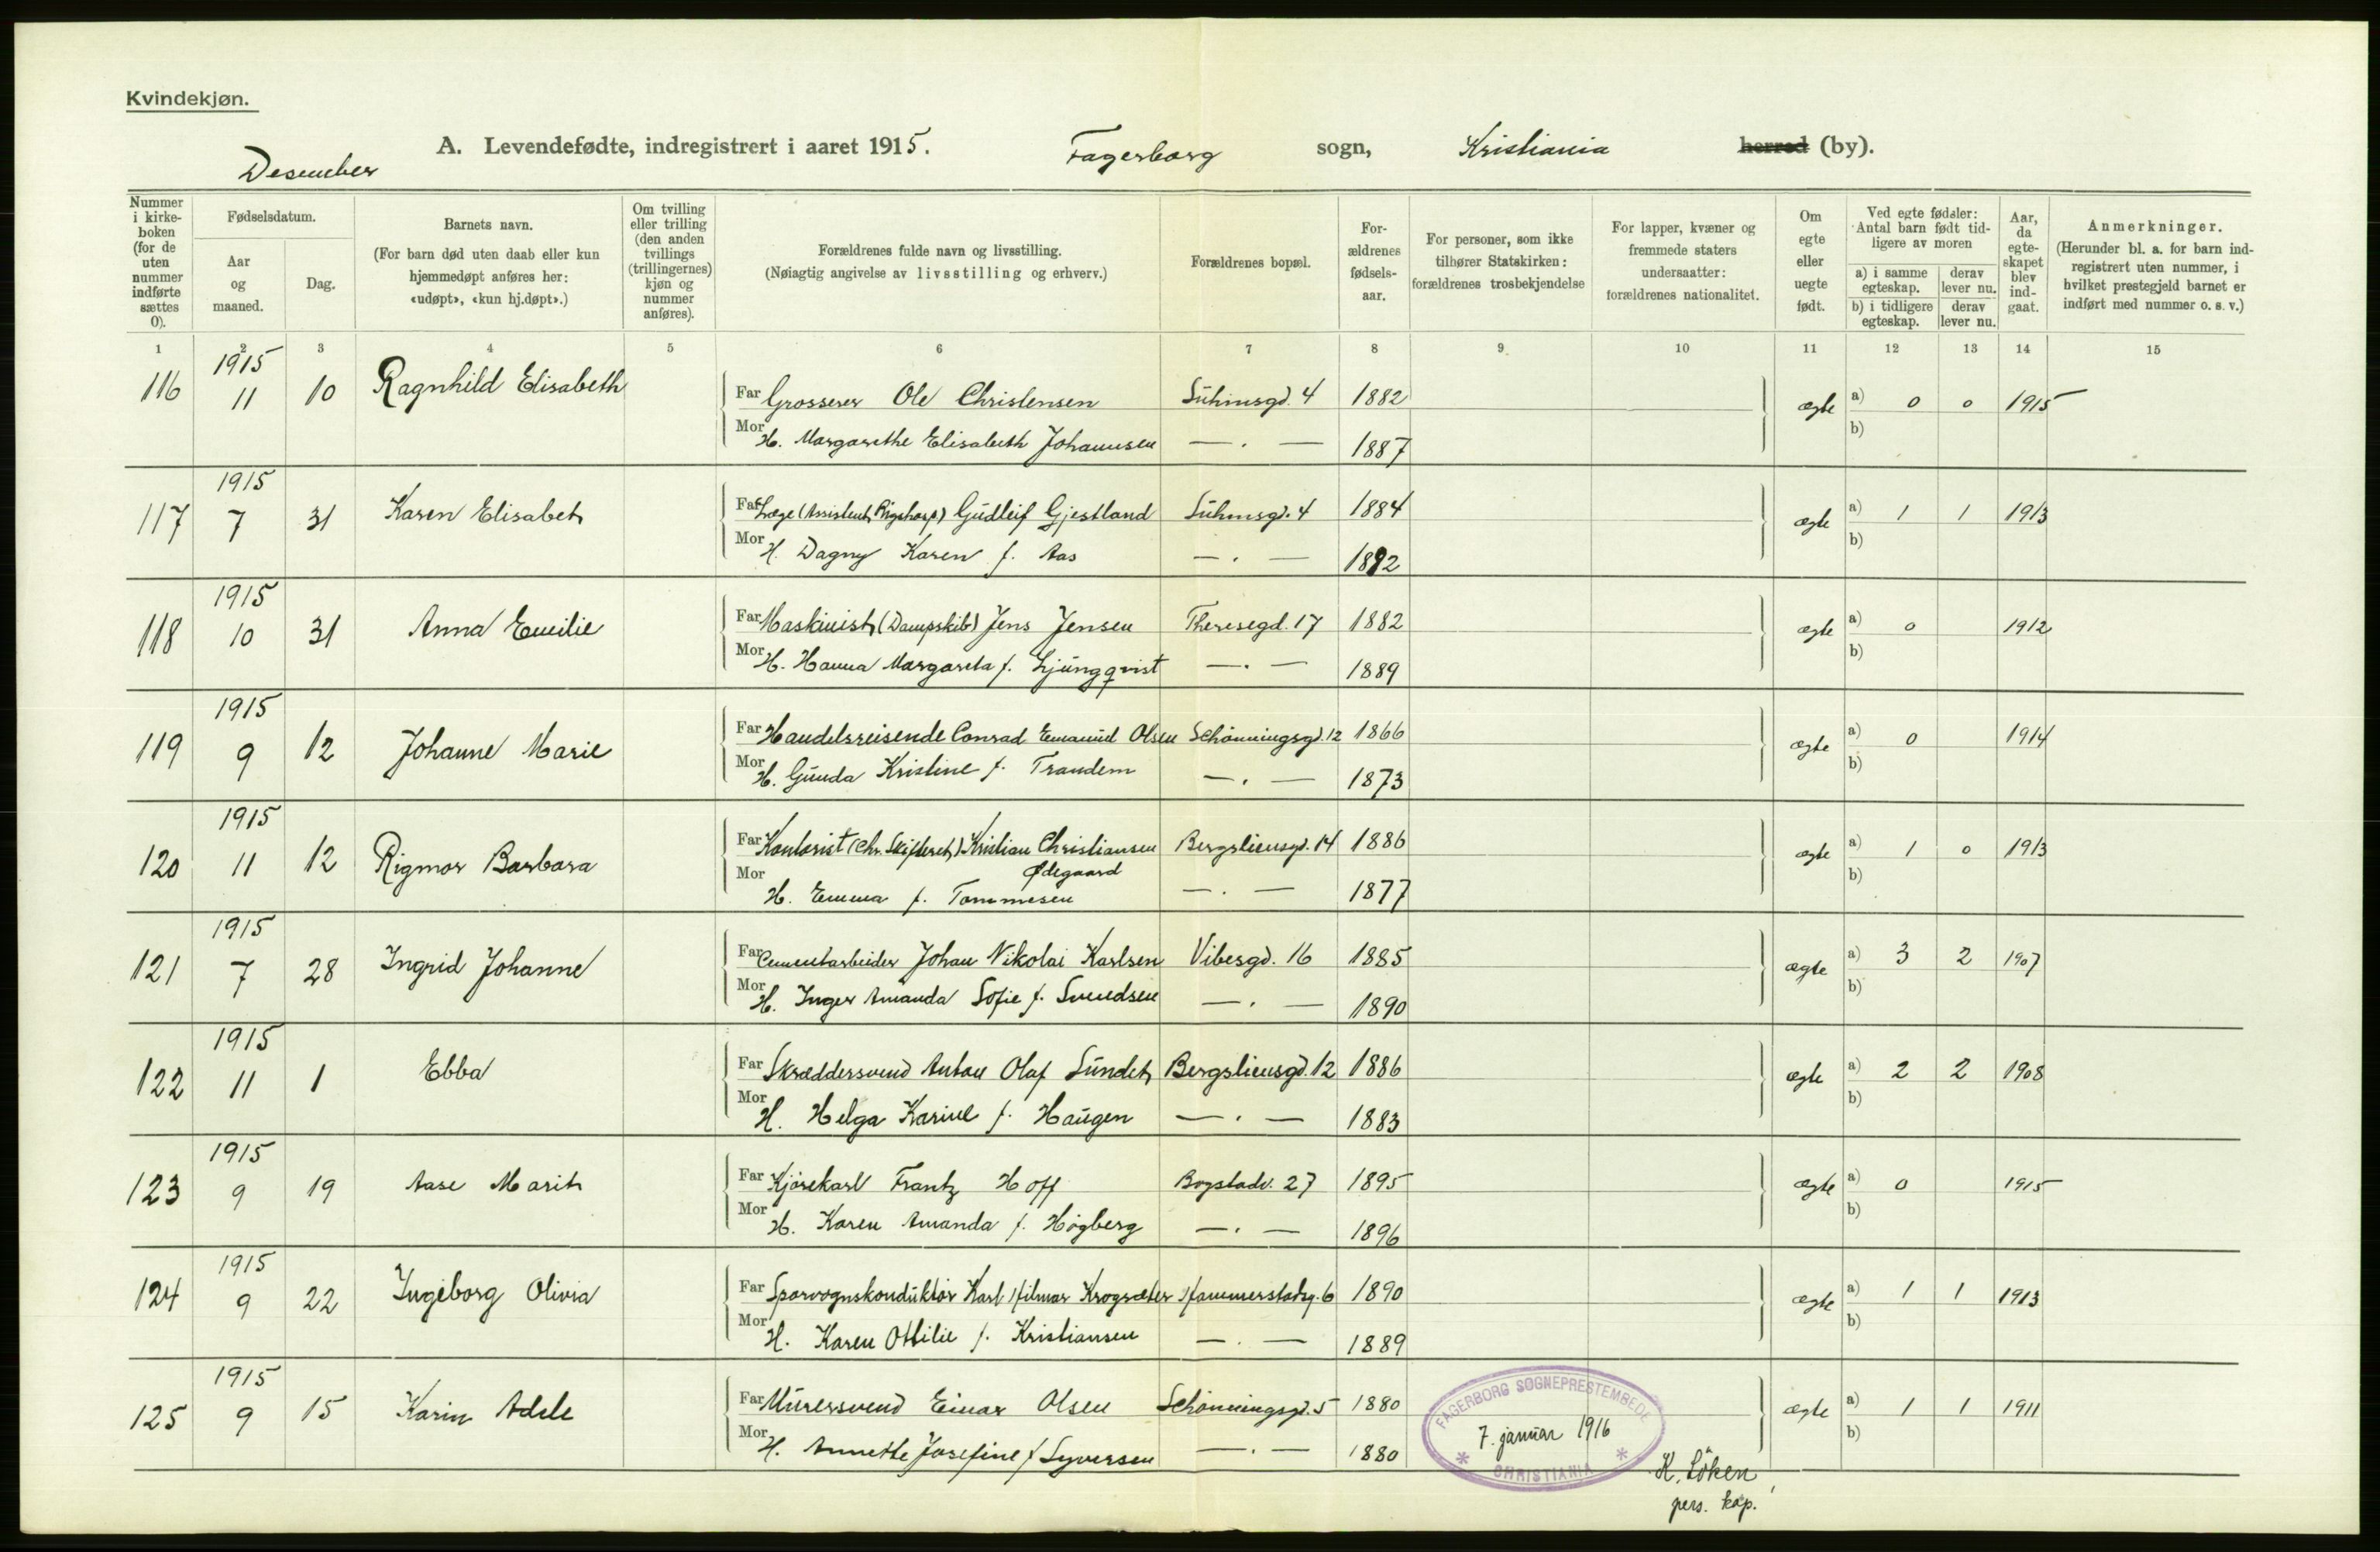 Kvindekjøn.
A. Levendefødte, indregistrert i aaret 1915. Fagerborg sogn, Kristiania herred (by).
Desember
Nummer i kirke-boken (for de uten nummer indførte sættes 0).
Fødselsdatum.
Aar og maaned.
Dag.
Barnets navn.
(For barn død uten daab eller kun hjemmedøpt anføres her: «udøpt», «kun hj.døpt».)
Om tvilling eller trilling (den anden tvillings (trillingernes) kjøn og nummer anføres).
Forældrenes fulde navn og livsstilling.
(Nøiagtig angivelse av livsstilling og erhverv.)
Forældrenes bopæl.
For-ældrenes fødsels-aar.
For personer, som ikke tilhører Statskirken: forældrenes trosbekjendelse
For lapper, kvæner og fremmede staters undersaatter: forældrenes nationalitet.
Om egte eller uegte født.
Ved egte fødsler: Antal barn født tid-ligere av moren
a) i samme egteskap.
derav lever nu.
b) i tidligere egteskap.
derav lever nu.
Aar, da egte-skapet blev ind-gaat.
Anmerkninger.
(Herunder bl. a. for barn ind-registrert uten nummer, i hvilket prestegjeld barnet er indført med nummer o. s. v.)
1 2 3 4 5 6 7 8 9 10 11 12 13 14 15
1915
116 11 10 Ragnhild Elisabeth Far Grosserer Ole Christensen Suhmsgd. 4 1882 ægte a) 0 0 1915
Mor H. Margarethe Elisabeth Johannsen — . — 1887 b)
1915
117 7 31 Karen Elisabet Far Læge (Assistent Rigshosp) Gudleif Gjestland Suhmsgd. 4 1884 ægte a) 1 1 1913
Mor H. Dagny Karen f. Aas — . — 1892 b)
1915
118 10 31 Anna Emilie Far Maskinist (Dampskib) Jens Jensen Theresegd. 17 1882 ægte a) 0 1912
Mor H. Hanna Margareta f. Ljungqvist — . — 1889 b)
1915
119 9 12 Johanne Marie Far Handelsreisende Conrad Emanuel Olsen Schønningsgd. 12 1866 ægte a) 0 1914
Mor H. Gunda Kristine f. Trandem — . — 1873 b)
1915
120 11 12 Rigmor Barbara Far Kontorist (Chr. Skifteret) Kristian Christiansen Bergsliensgd. 14 1886 ægte a) 1 0 1913
Ødegaard
Mor H. Emma f. Tommesen — . — 1877 b)
1915
121 7 28 Ingrid Johanne Far Cementarbeider Johan Nikolai Karlsen Vibesgd. 16 1885 ægte a) 3 2 1907
Mor H. Inger Amanda Sofie f. Svendsen — . — 1890 b)
1915
122 11 1 Ebba Far Skræddersvend Anton Olaf Sundet Bergsliensgd. 12 1886 ægte a) 2 2 1908
Mor H. Helga Karine f. Haugen — . — 1883 b)
1915
123 9 19 Aase Marit Far Kjørekarl Frantz Hoff Bogstadv. 27 1895 ægte a) 0 1915
Mor H. Karen Amanda f. Høgberg — . — 1896 b)
1915
124 9 22 Ingeborg Olivia Far Sporvognskonduktør Karl Hilmar Krogsæter Hammerstadsg. 6 1890 ægte a) 1 1 1913
Mor H. Karen Ottilie f. Kristiansen — . — 1889 b)
1915
125 9 15 Karin Adele Far Murersvend Einar Olsen Schønningsgd. 5 1880 ægte a) 1 1 1911
Mor H. Annette Josefine f Syversen — . — 1880 b)
FAGERBORG SOGNEPRESTEMBEDE
7. januar 1916
* CHRISTIANIA *
K. Løken,
pers. kap.